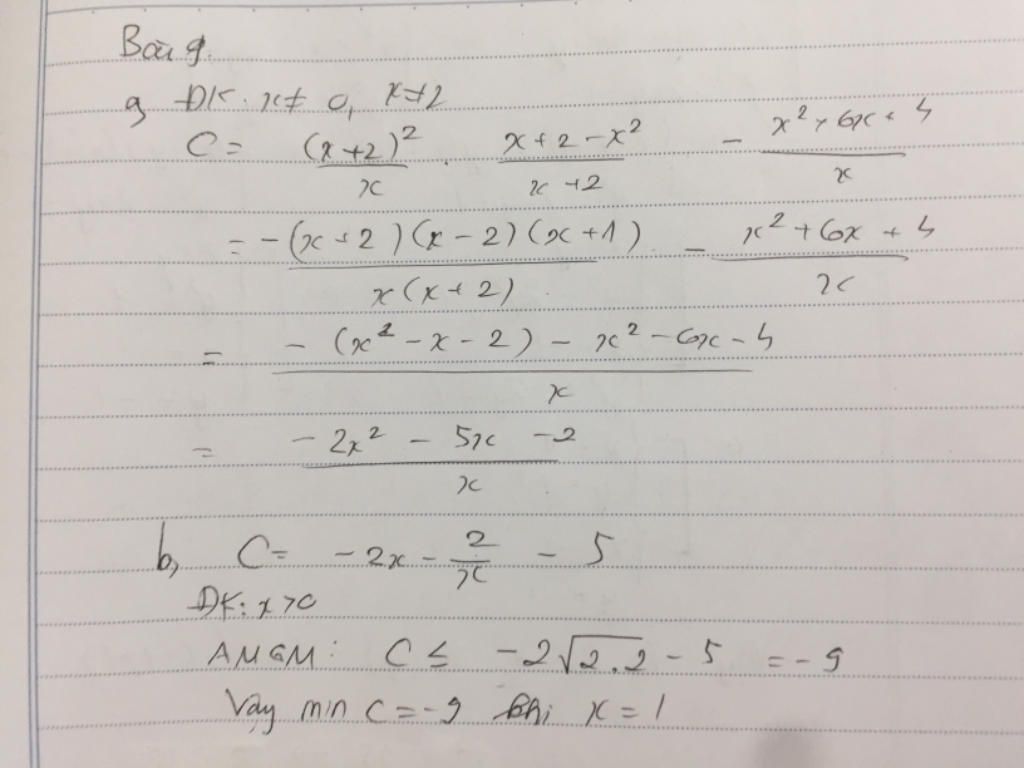 Bài 9.
a, ĐK: x ≠ 0, x ≠ 2
C = (x+2)²/x . (x+2-x²)/(x+2) - (x²+6x+4)/x
= -(x+2)(x-2)(x+1)/(x(x+2)) - (x²+6x+4)/x
= (-(x²-x-2)-x²-6x-4)/x
= (-2x²-5x-2)/x
b, C = -2x - 2/x - 5
ĐK: x>0
AMGM: C ≤ -2√(2.2) - 5 = -9
Vậy min C = -9 khi x = 1